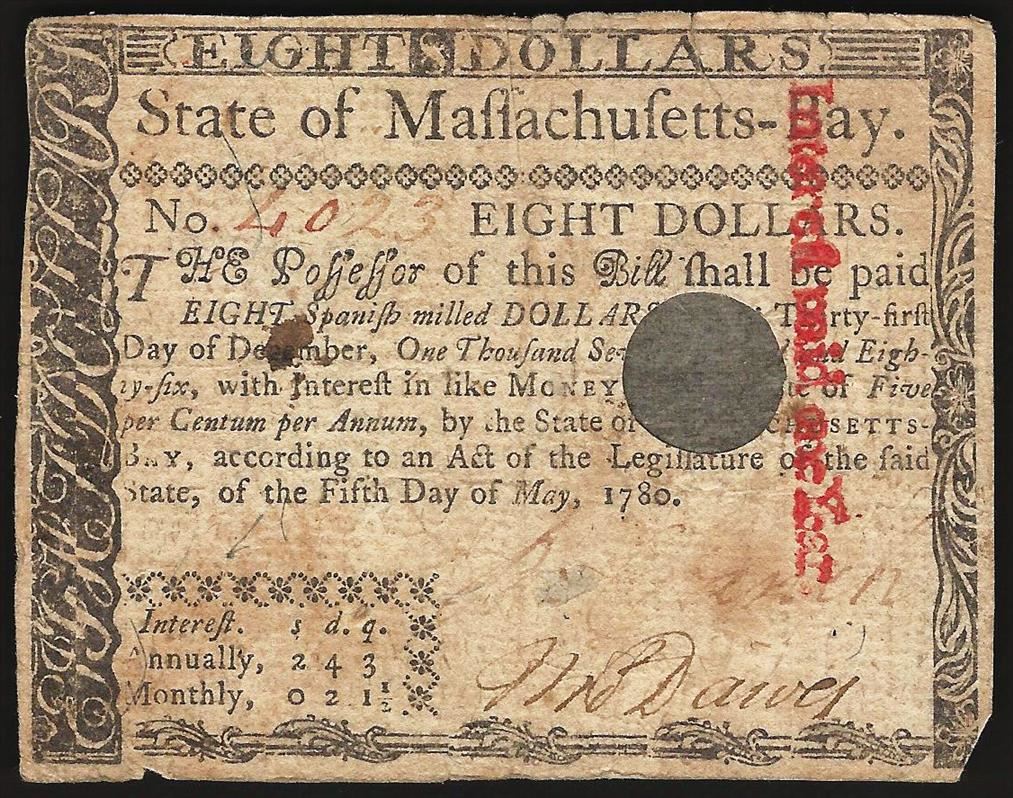 EIGHT DOLLARS.
State of Maſſachuſetts-Bay.
No. 4023 EIGHT DOLLARS.
THE Poſſeſſor of this Bill ſhall be paid
EIGHT Spaniſh milled DOLLARS Thirty-firſt
Day of December, One Thouſand and Eigh-
ty-ſix, with Intereſt in like MONEY of Five
per Centum per Annum, by the State of
BAY, according to an Act of the Legiſlature of the ſaid
State, of the Fifth Day of May, 1780.
Intereſt. s d. q.
Annually, 2 4 3
Monthly, 0 2 1½
Tho Dawes
Intereſt paid one Year
EIGHT DOLLARS